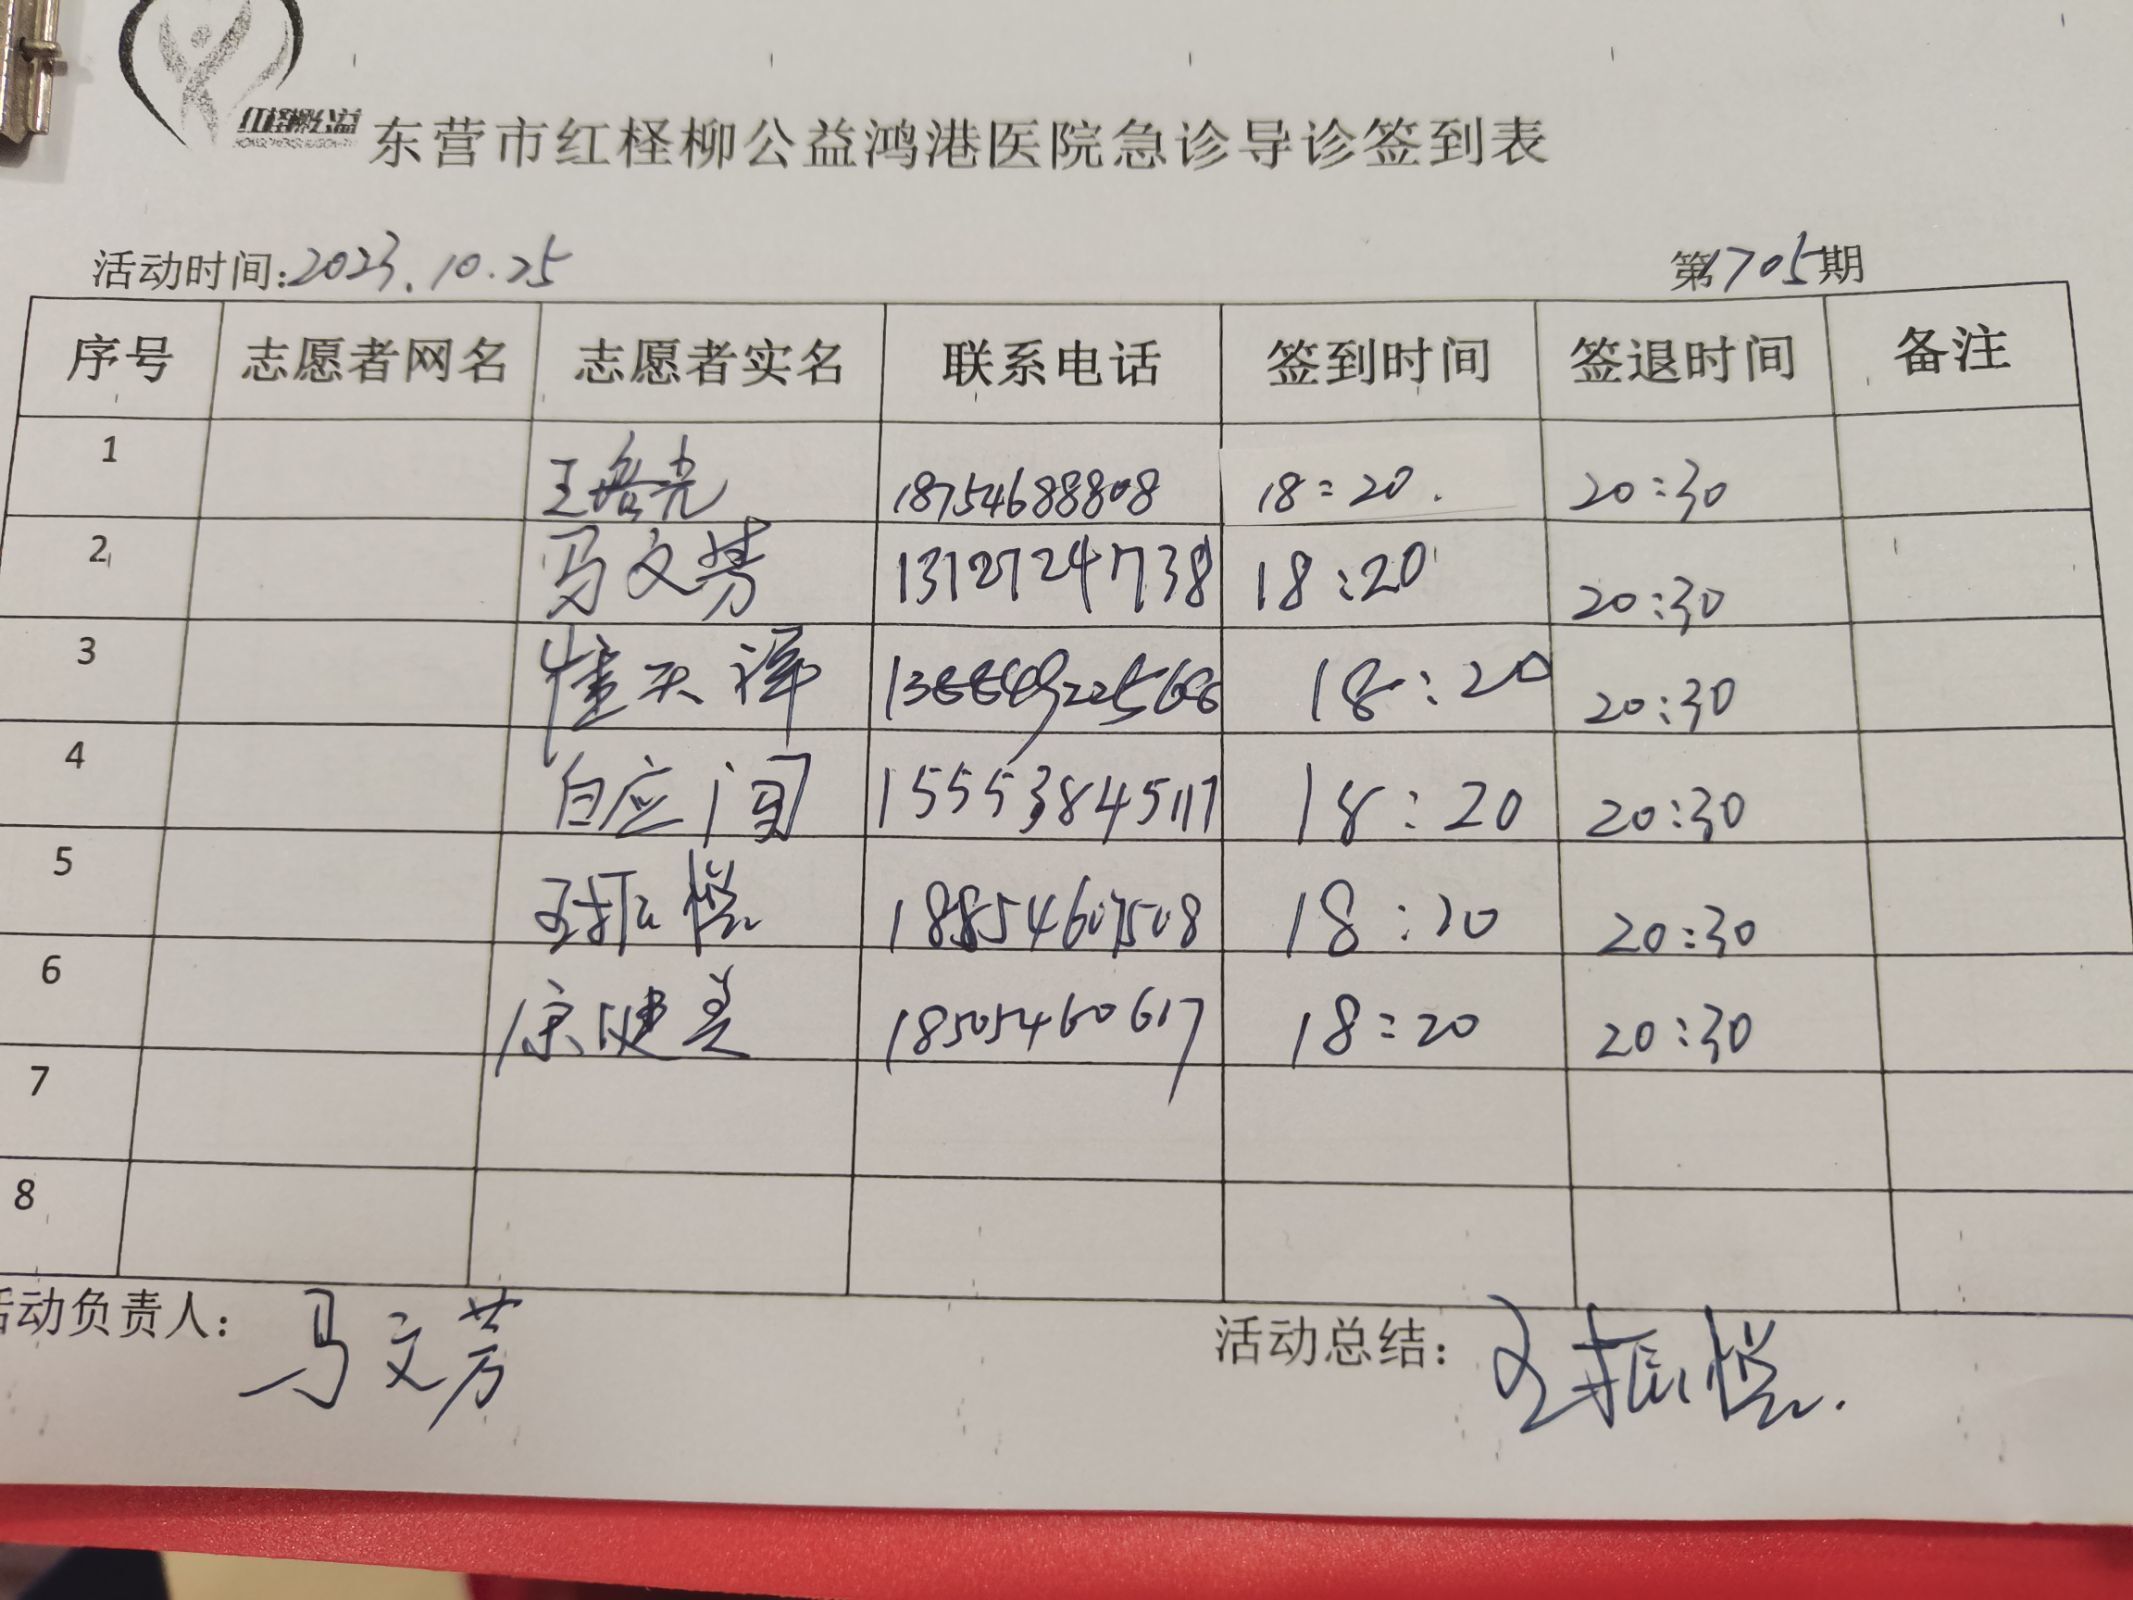 红柽柳公益
东营市红柽柳公益鸿港医院急诊导诊签到表
活动时间:2023.10.25 第1705期
序号 志愿者网名 志愿者实名 联系电话 签到时间 签退时间 备注
1 18754688808 18:20. 20:30
2 马文芳 13127247738 18:20 20:30
3 18:20 20:30
4 15553845117 18:20 20:30
5 王振悦 18854607508 18:20 20:30
6 康健美 18505460617 18:20 20:30
7
8
活动负责人: 马文芳 活动总结: 王振悦.